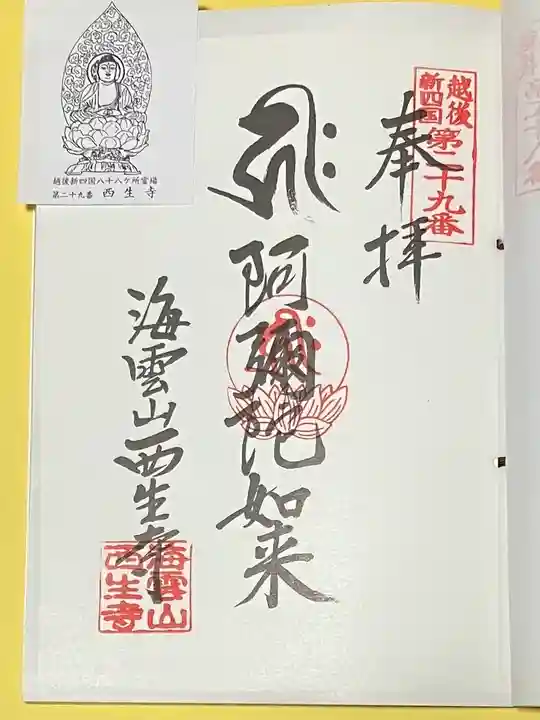 越後
新四国
第二十九番
奉拝
阿彌陀如来
海雲山西生寺
海雲山
西生寺
越後新四国八十八ケ所霊場
第二十九番 西生寺